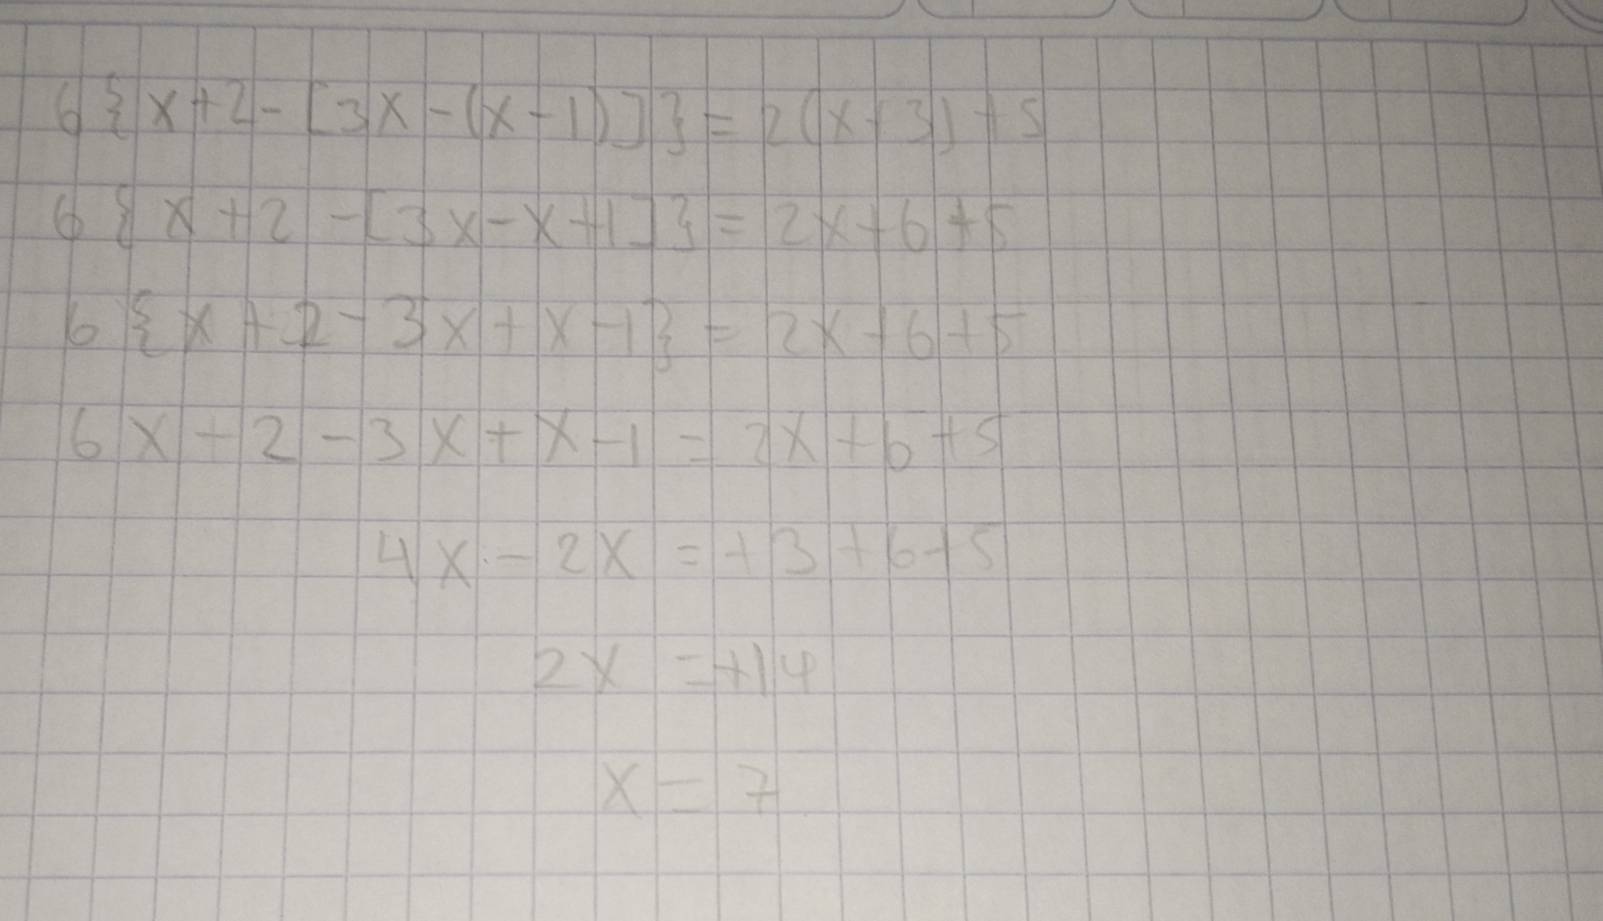 6{x+2-[3x-(x-1)]}=2(x+3)+5
6{x+2-[3x-x+1]}=2x+6+5
6{x+2-3x+x-1}=2x+6+5
6x-2-3x+x-1=2x+6+5
4x-2x=+3+6+5
2x=+14
x=7